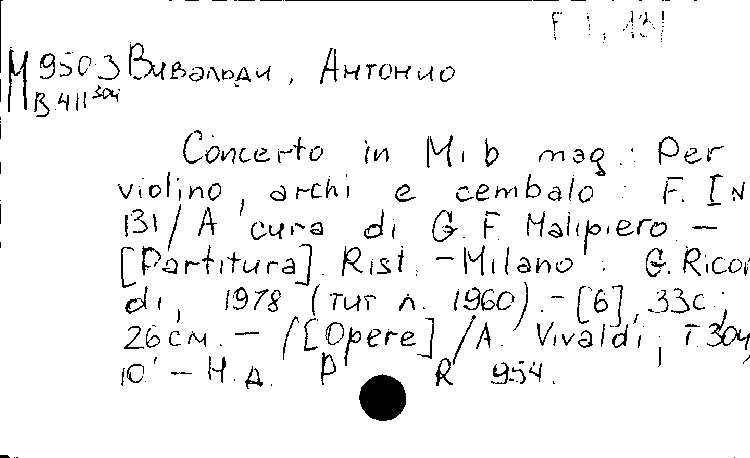 F I, 131
М 9503 Вивальди, Антонио
В 411 304
Concerto in Mi b mag.: Per
violino, archi e cembalo : F. I N
131 / A cura di G. F. Malipiero. –
[Partitura]. Rist. – Milano : G. Ricor
di, 1978 (тит л. 1960). – [6], 33 с.;
26 см. – ([Opere] / A. Vivaldi; т. 304,
10. – Н. д. P R 954.